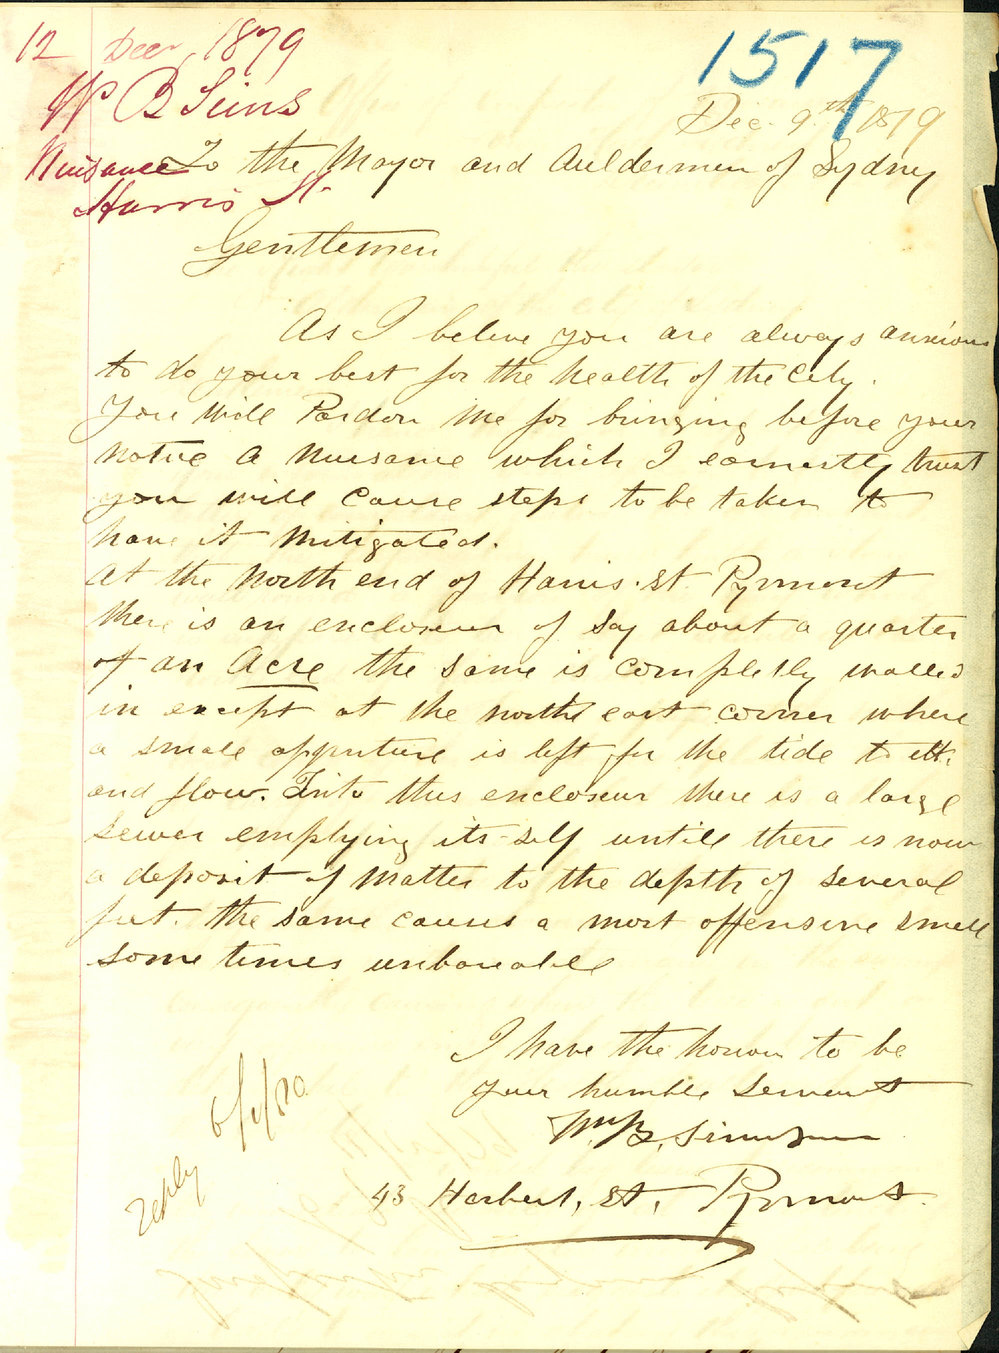 12 Decr, 1879
W B Sims
Nuisance
Harris St
1517
Dec. 9th 1879
To the Mayor and Auldermen of Sydney
Gentlemen
As I beleve you are always anxious
to do your best for the health of the City.
You will Pardon me for bringing before your
notice a nuesance which I earnestly trust
you will cause steps to be taken to
have it mitigated.
At the north end of Harris. St. Pyrmont
there is an encloseur of say about a quarter
of an Acre the same is completly walled
in except at the north east corner where
a small apperture is left for the tide to ebb
and flow. Into this encloseur there is a large
sewer emptying its-self untill there is now
a deposit of matter to the depth of several
feet. the same causes a most offensive smell
some times unbareable
I have the honour to be
your humble servant
Wm B.
43 Herbert, St, Pyrmont.
reply 6/1/80